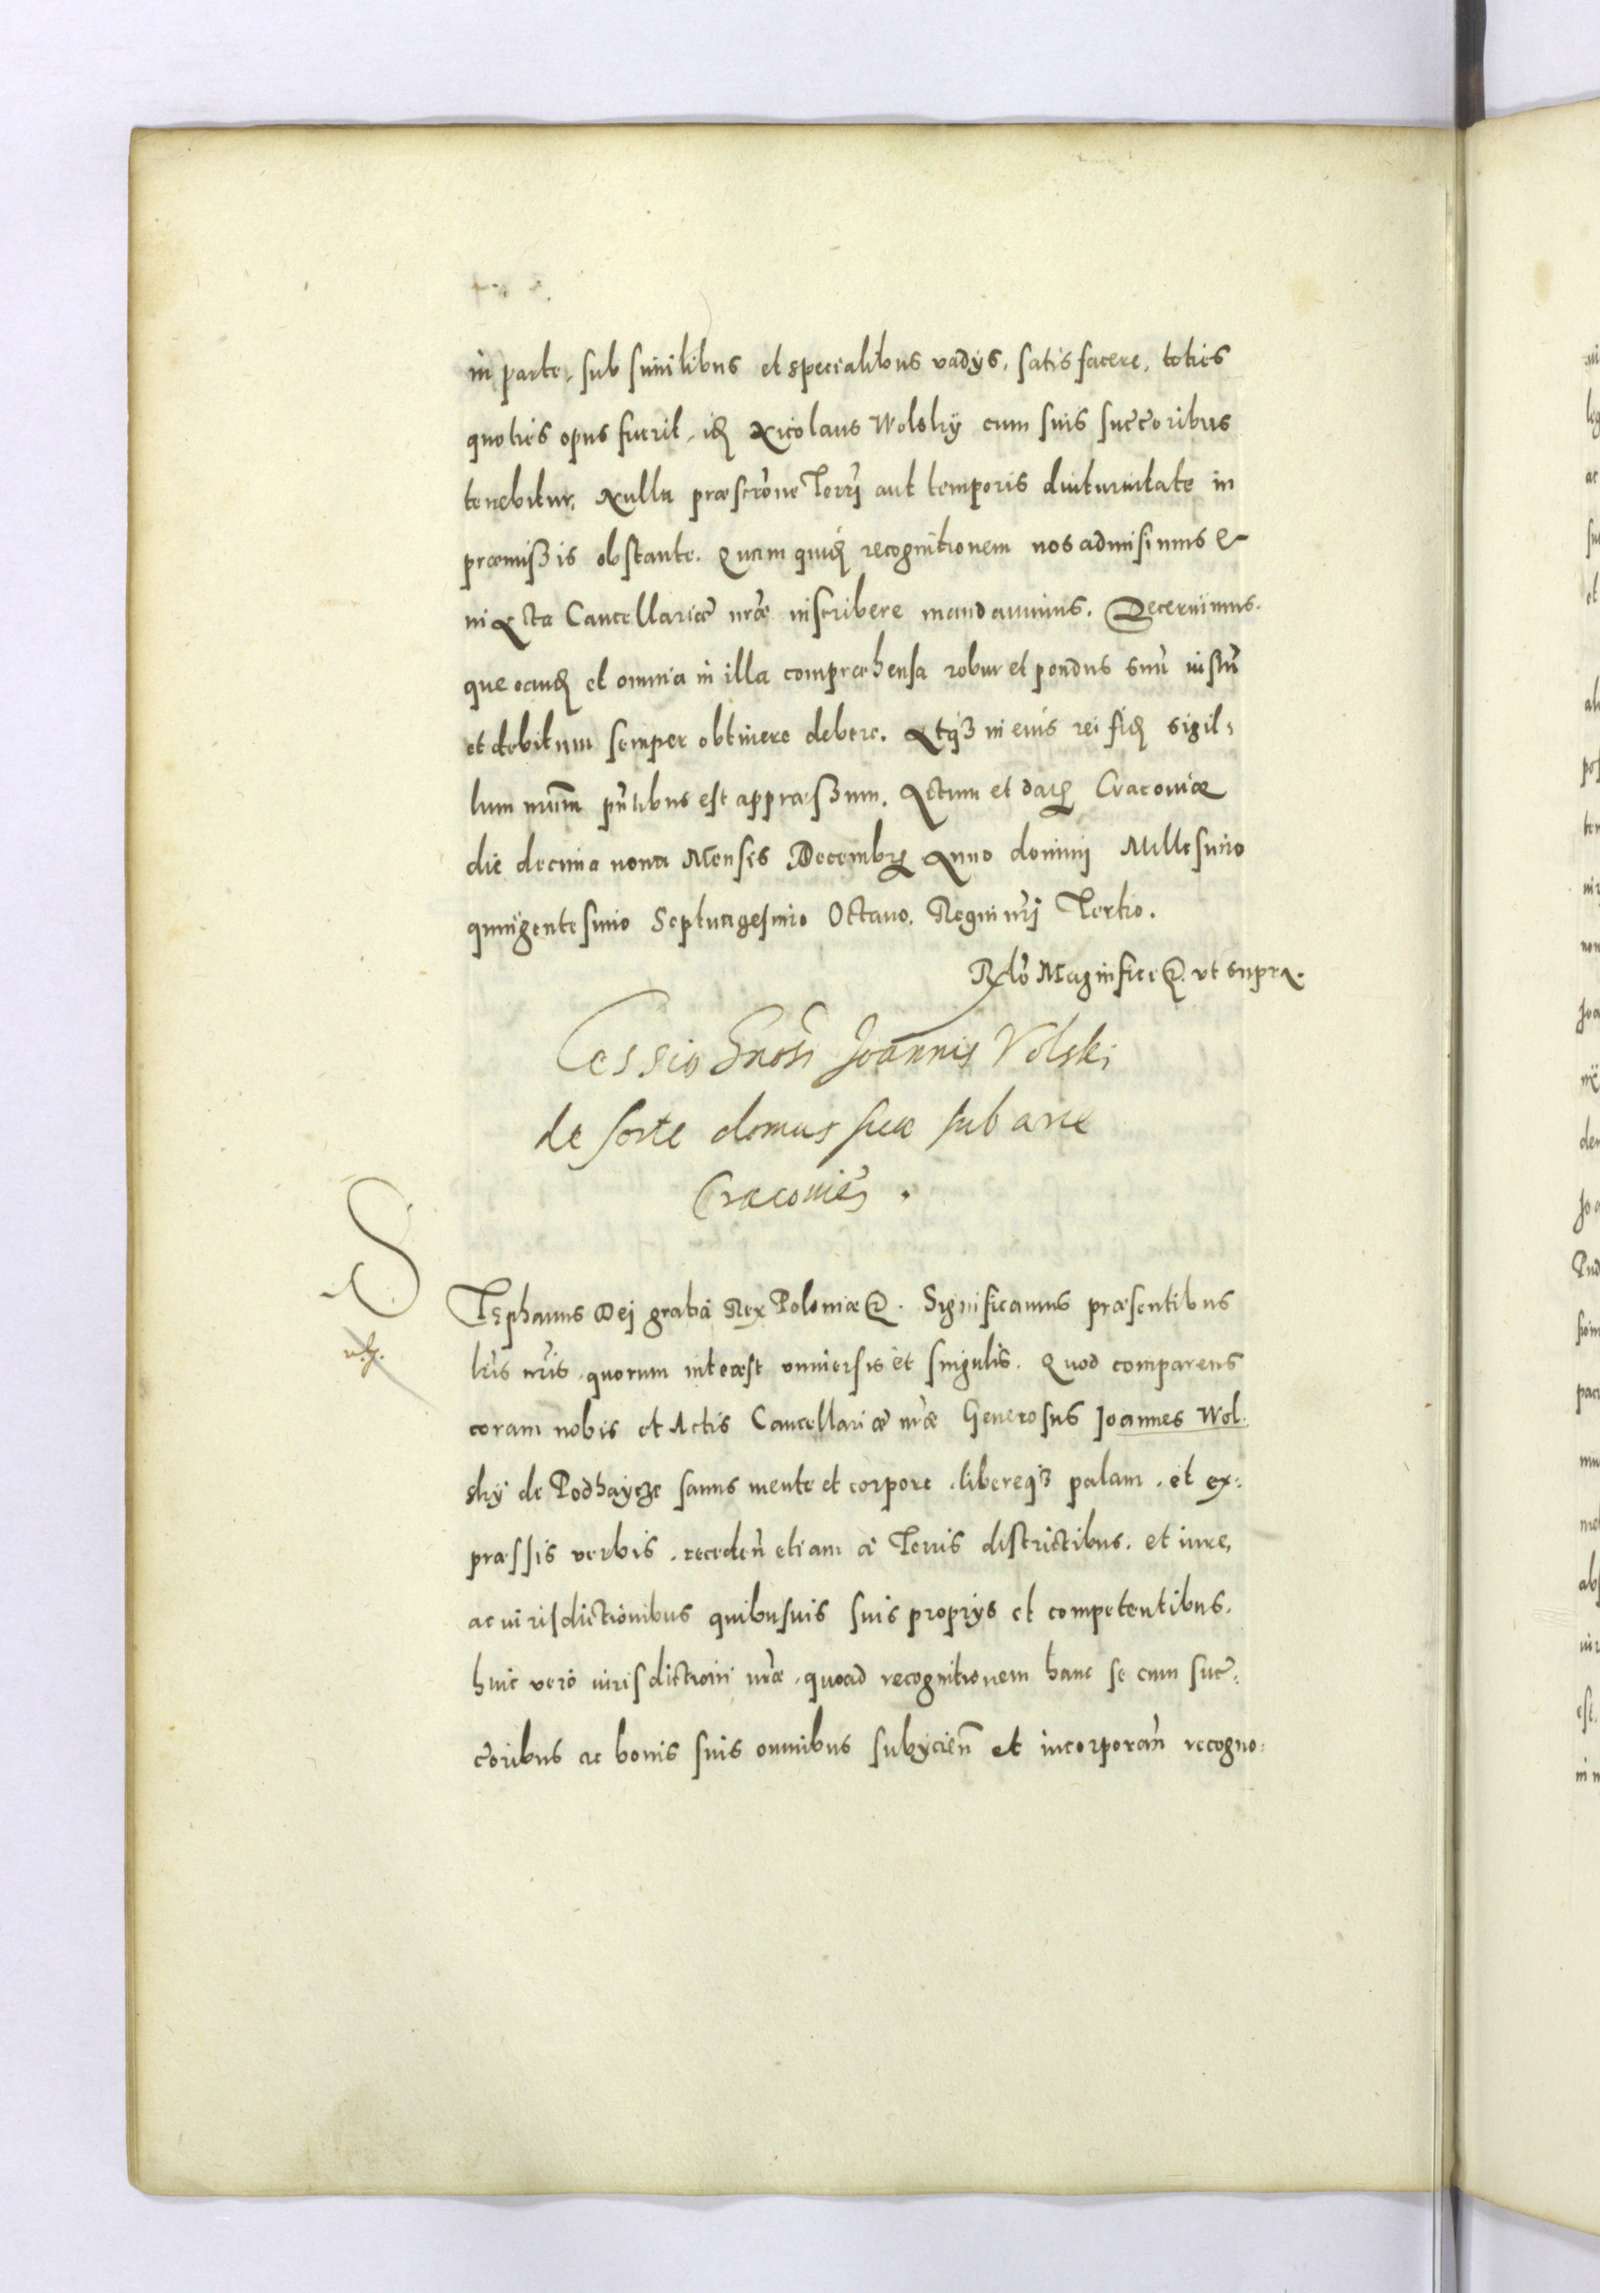 in parte, sub similibus et specialibus vadys, satisfacere, toties
quoties opus fuerit, idē Nicolaus Wolsky cum suis succōribus
tenebitur. Nulla præscrōne Terrī aut temporis diuturnitate in
præmissis obstante. Quam quidē recognitionem nos admisimus &
in Acta Cancellariæ nr̄æ inscribere mandauimus. Decernimus-
que eandē et omnia in illa compræhensa robur et pondus suū iustū
et debitum semper obtinere debere. Atqȝ in eius rei fidē sigil-
lum nr̄um pn̄tibus est appræssum. Actum et datū Cracoviæ
die decima nona Mensis Decembrꝭ Anno dominj Millesimo
quingentesimo Septuagesimo Octauo. Regni nr̄j Tertio.
Rlō Magnifici &. vt supra.
Cessio Gnosi Joannis Volski
de sorte domus suæ sub arce
Cracovień.
S
Tephanus Dej gratia Rex Poloniæ &. Significamus præsentibus
lr̄is nr̄is, quorum interest vniuersis et singulis. Quod comparens
coram nobis et Actis Cancellariæ nr̄æ Generosus Joannes Wol-
sky de Podhaycze sanus mente et corpore, libereqȝ palam, et ex-
præssis verbis, receden̄ etiam a Terris districtibus, et iure,
ac iurisdictionibus quibusuis suis proprys et competentibus,
huic vero iurisdictioni nr̄æ, quoad recognitionem hanc se cum suc-
cōribus ac bonis suis omnibus subycien̄ et incorporan̄ recogno-